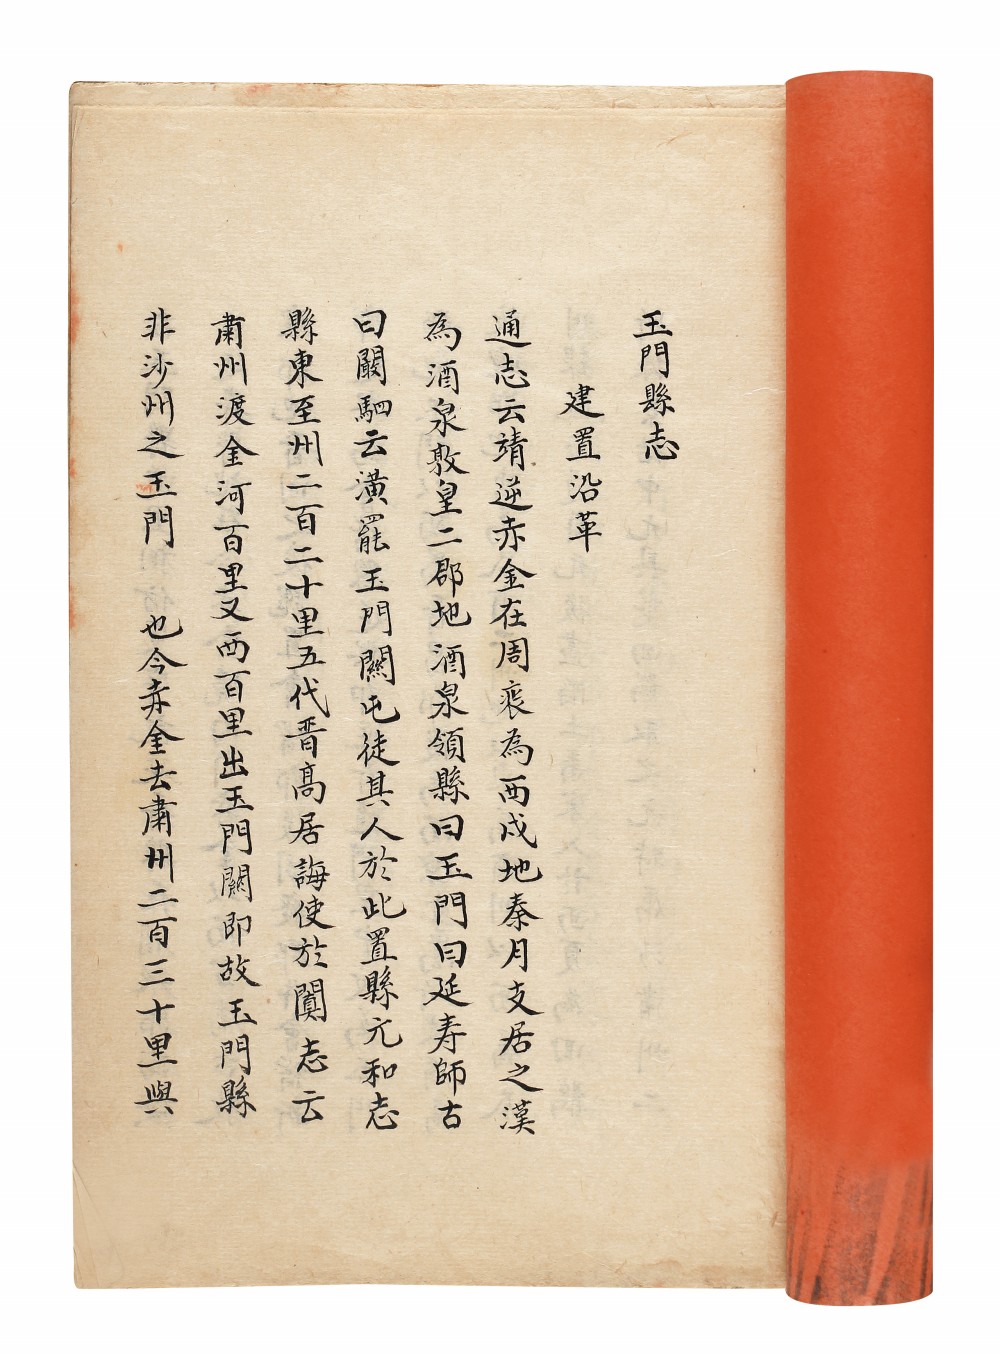 玉門縣志
建置沿革
通志云靖逆赤金在周衰為西戎地秦月支居之漢
為酒泉敦皇二郡地酒泉領縣曰玉門曰延寿師古
曰闞駰云漢罷玉門關屯徒其人於此置縣亢和志
縣東至州二百二十里五代晋高居誨使於闐志云
肅州渡金河百里又西百里出玉門關即故玉門縣
非沙州之玉門 也今赤金去肅州二百三十里與